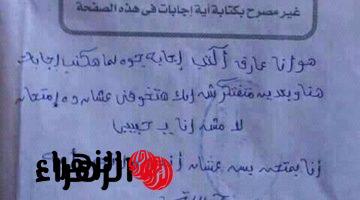 غير مصرح بكتابة أية إجابات فى هذه الصفحة
هو انا عارف أكتب إجابة جوه لما هكتب إجابات
هنا وبعدين متفتكرش إنك هتخوفنى عشان ده إمتحان
لا مش أنا يا حبيبى
أنا بمتحن بس عشان
الزهراء